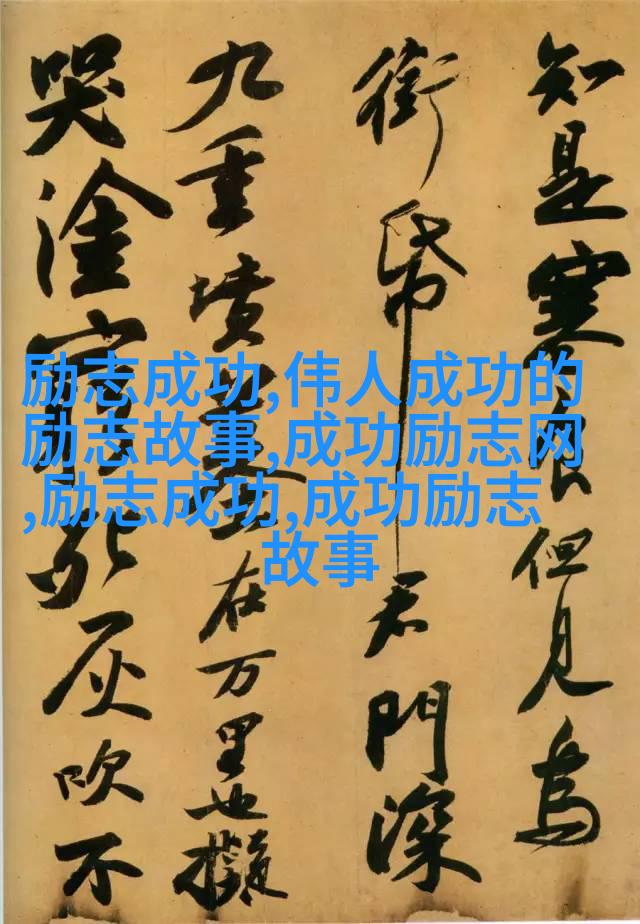 知是寒食但見烏
銜帋君門深
九重墳墓在万里也擬
哭塗窮死灰吹不
励志成功,伟人成功的
励志故事,成功励志网
,励志成功,成功励志
故事